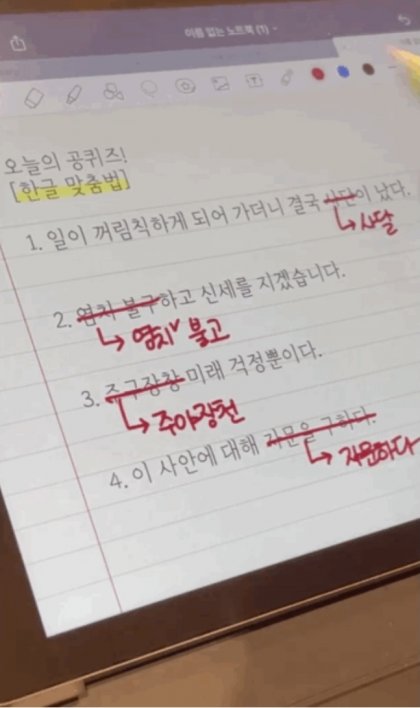 이름 없는 노트북 (1)
오늘의 공퀴즈!
[한글 맞춤법]
1. 일이 꺼림칙하게 되어 가더니 결국 사단이 났다.
↳ 사달
2. 염치 불구하고 신세를 지겠습니다.
↳ 염치∨불고
3. 주구장창 미래 걱정뿐이다.
↳ 주야장천
4. 이 사안에 대해 자문을 구하다.
↳ 자문하다